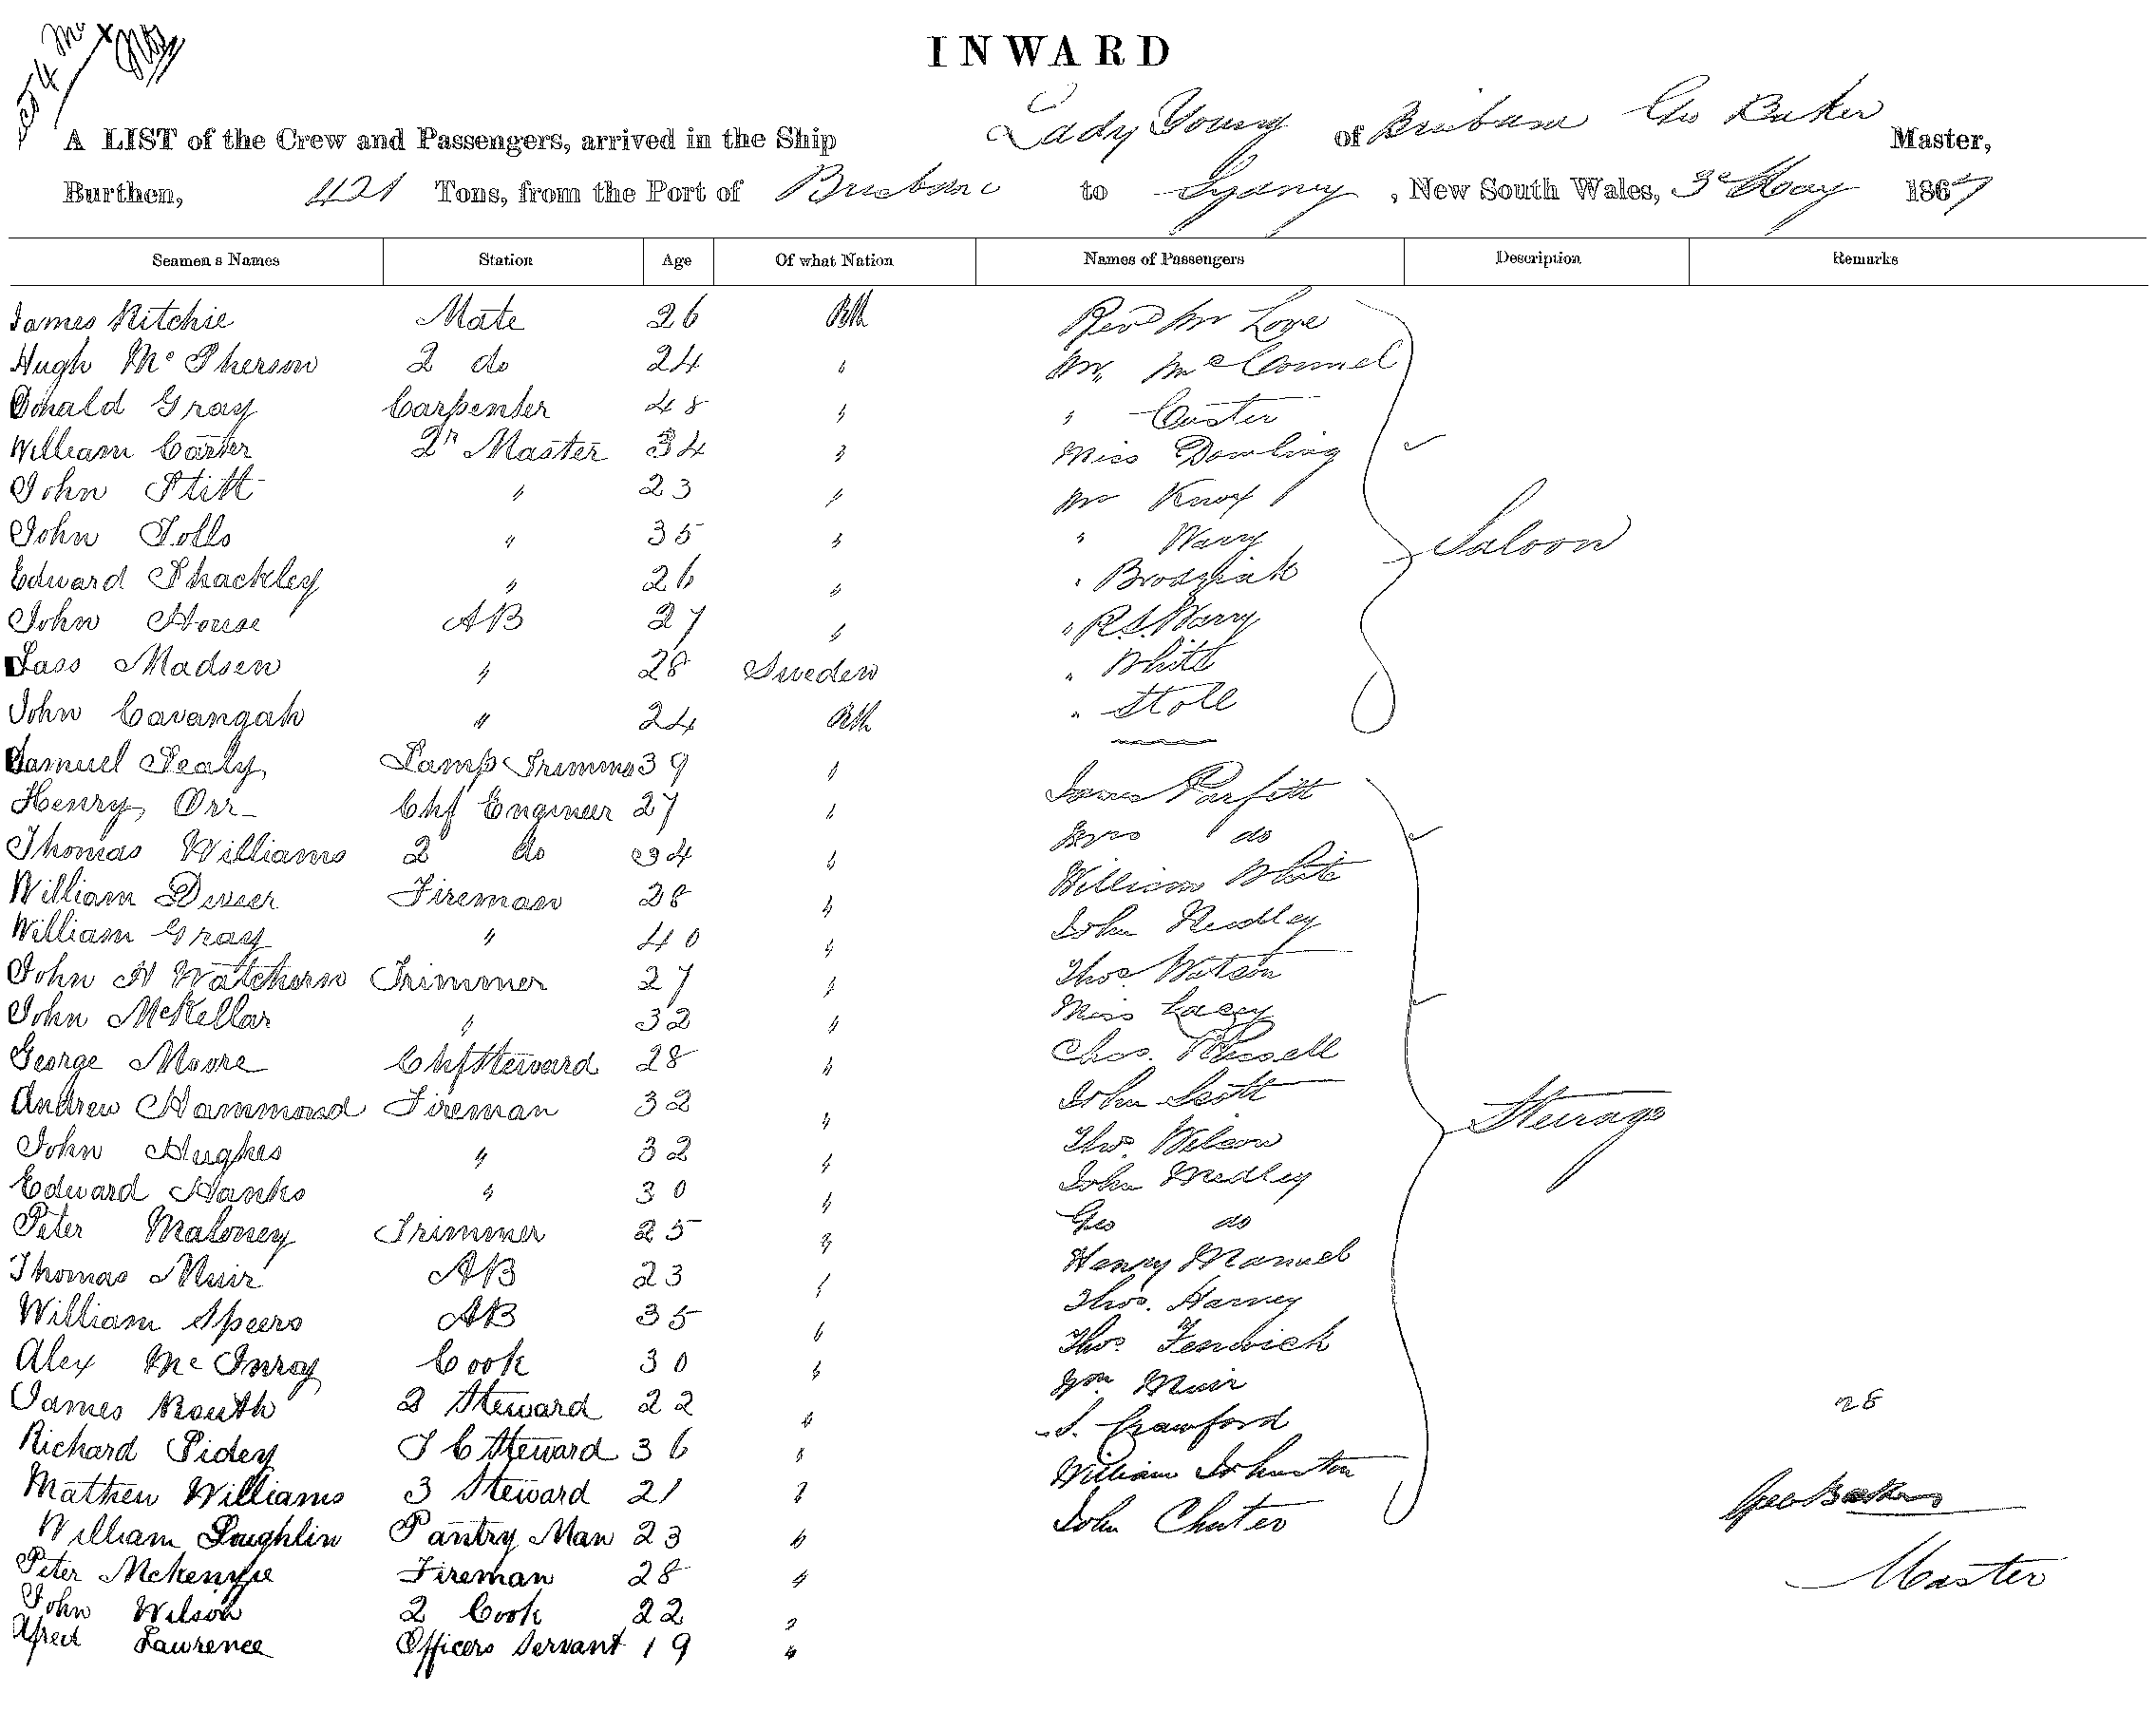 INWARD
A LIST of the Crew and Passengers, arrived in the Ship Lady Young of Brisbane Geo Baker Master,
Burthen, 421 Tons, from the Port of Brisbane to Sydney, New South Wales, 3d May 1867
Seamen s Names Station Age Of what Nation Names of Passengers Description Remarks
James Ritchie Mate 26 Bth Revd Mr Love
Hugh Mc Pherson 2 do 24 " Mr McConnel
Donald Gray Carpenter 48 " " Custer
William Carter 2r Master 34 " Miss Dowling
John Stitt " 23 " Mr Knox
John Tolls " 35 " " Warry Saloon
Edward Shackley " 26 " " Brodziak
John House AB 27 " " R.S. Warry
Lass Madsen " 28 Sweden " White
John Cavangah " 24 Bth " Stoll
Samuel Sealy Lamp Trimmer 39 "
Henry Orr Chf Engineer 27 " James Parfitt
Thomas Williams 2 do 34 " Mrs do
William Dwier Fireman 28 " William White
William Gray " 40 " John
John H Watchorn Trimmer 27 " Thos Watson
John McKellar " 32 " Miss Lacey
George Moore Chf Steward 28 " Chas. Russell
Andrew Hammond Fireman 32 " John Scott Steirage
John Hughes " 32 " Thos. Wilson
Edward Hanks " 30 " John Medley
Peter Maloney Trimmer 25 " Geo do
Thomas Muir AB 23 " Henry Manuel
William Speers AB 35 " Thos. Harvey
Alex Mc Inroy Cook 30 " Thos. Fenwick
James Routh 2 Steward 22 " Wm Muir 28
Richard Pidey J C Steward 36 " S. Crawford
Mathew Williams 3 Steward 21 " William Johnston Geo Baker
William Loughlin Pantry Man 23 " John Chater
Peter Mckenzie Fireman 28 " Master
John Wilson 2 Cook 22 "
Alfred Lawrence Officers Servant 19 "